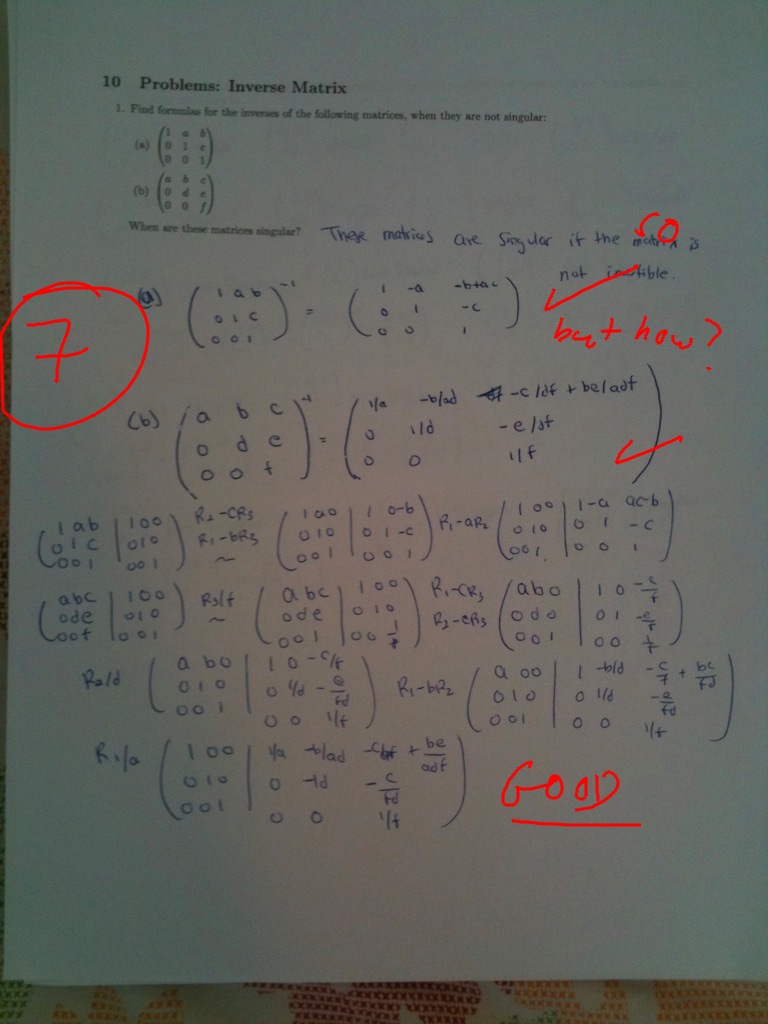 10 Problems: Inverse Matrix
1. Find formulas for the inverses of the following matrices, when they are not singular:
(a) (1 a b
0 1 c
0 0 1)
(b) (a b c
0 d e
0 0 f)
When are these matrices singular? These matrices are singular if the matrix is
so
not invertible.
(a) (1 a b
0 1 c
0 0 1)⁻¹ = (1 -a -b+ac
0 1 -c
0 0 1)
but how?
7
(b) (a b c
0 d e
0 0 f)⁻¹ = (1/a -b/ad -c/df + be/adf
0 1/d -e/df
0 0 1/f)
(1 a b | 1 0 0
0 1 c | 0 1 0
0 0 1 | 0 0 1) R₂-CR₃ R₁-bR₃ ~ (1 a 0 | 1 0 -b
0 1 0 | 0 1 -c
0 0 1 | 0 0 1) R₁-aR₂ (1 0 0 | 1 -a ac-b
0 1 0 | 0 1 -c
0 0 1 | 0 0 1)
(a b c | 1 0 0
0 d e | 0 1 0
0 0 f | 0 0 1) R₃/f ~ (a b c | 1 0 0
0 d e | 0 1 0
0 0 1 | 0 0 1/f) R₁-CR₃ R₂-eR₃ (a b 0 | 1 0 -c/f
0 d 0 | 0 1 -e/f
0 0 1 | 0 0 1/f)
R₂/d (a b 0 | 1 0 -c/f
0 1 0 | 0 1/d -e/fd
0 0 1 | 0 0 1/f) R₁-bR₂ (a 0 0 | 1 -b/d -c/f + bc/fd
0 1 0 | 0 1/d -e/fd
0 0 1 | 0 0 1/f)
R₁/a (1 0 0 | 1/a -b/ad + be/adf
0 1 0 | 0 -c/fd
0 0 1 | 0 0 1/f)
GOOD